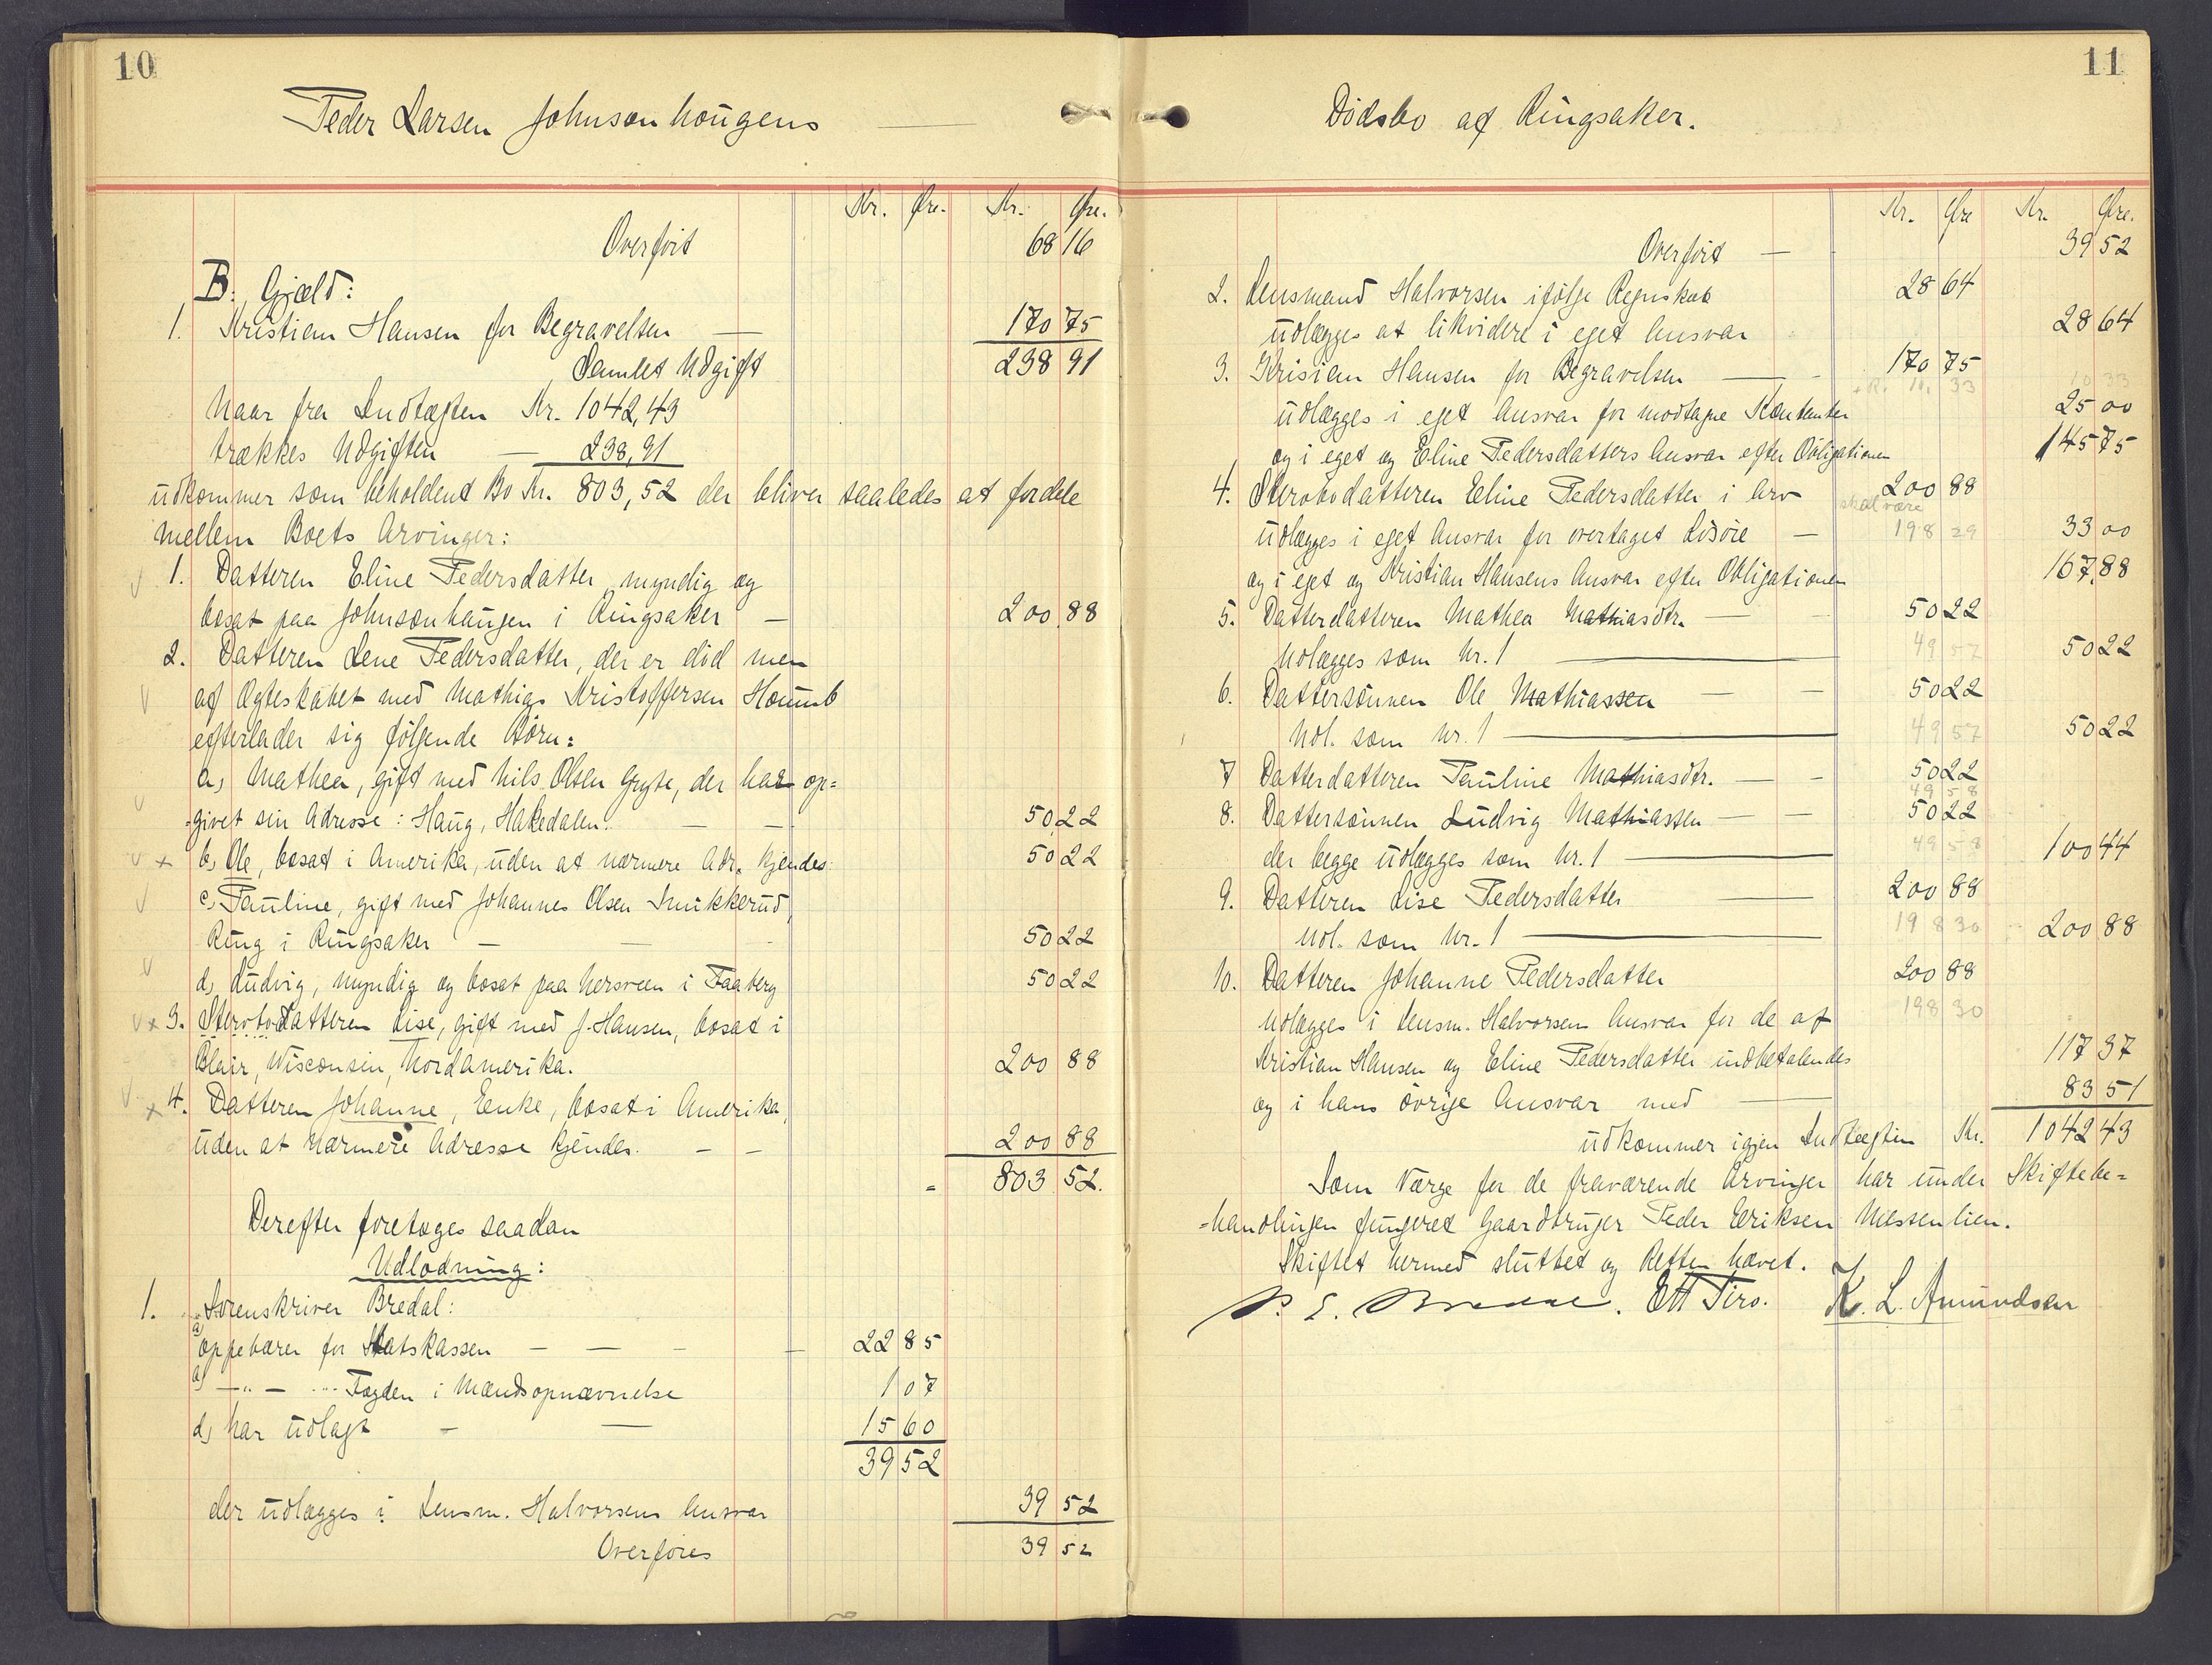 10
Peder Larsen Johnsenhougens
Kr. Øre. Kr. Øre.
Overført 68 16
B. Gjæld:
1. Kristian Hansen for Begravelsen 170 75
Samlet Udgift 238 91
Naar fra Indtægten Kr. 1042,43
trækkes Udgiften — 238,91
udkommer som beholdent Bo Kr. 803,52 der bliver saaledes at fordele
mellem Boets Arvinger:
1. Datteren Eline Pedersdatter, myndig og
bosat paa Johnsenhaugen i Ringsaker — 200 88
2. Datteren Lene Pedersdatter, der er død men
af Ægteskabet med Mathias Kristoffersen Houmb
efterlader sig følgende Børn:
a, Mathea, gift med Nils Olsen Gryte, der har op=
=givet sin Adresse: Haug, Hakedalen. — — 50 22
b, Ole, bosat i Amerika, uden at nærmere Adr. kjendes 50 22
c, Pauline, gift med Johannes Olsen Smikkerud,
Ring i Ringsaker — — 50 22
d, Ludvig, myndig og bosat paa Nersveen i Faaberg 50 22
3. Sterbodatteren Lise, gift med J. Hansen, bosat i
Blair, Wisconsin, Nordamerika. 200 88
4. Datteren Johanne, Enke, bosat i Amerika,
uden at nærmere Adresse kjendes. — — 200 88
= 803 52.
Derefter foretoges saadan
Udlodning:
1. Sorenskriver Bredal:
a, oppebærer for Statskassen — — — 22 85
a) —„— Fogden i Mændsopnævnelse 1 07
d, har udlagt — — 15 60
39 52
der udlægges i Lensm. Halvorsens Ansvar 39 52
Overføres 39 52
11
Dødsbo af Ringsaker.
Kr. Øre Kr. Øre.
Overført — 39 52
2. Lensmand Halvorsen ifølge Regnskab 28 64
udlægges at likvidere i eget Ansvar 28 64
3. Krisian Hansen for Begravelsen — 170 75
10 33
udlægges i eget Ansvar for modtagne Kontanter 25 00
og i eget og Eline Pedersdatters Ansvar efter Obligationen 145 75
4. Sterbodatteren Eline Pedersdatter i Arv 200 88
skal være
udlægges i eget Ansvar for overtaget Løsøre — 198 29 33 00
og i eget og Kristian Hansens Ansvar efter Obligationen 167 88
5. Datterdatteren Mathea Mathiasdtr. — 50 22
Udlægges som Nr. 1 — 49 57 50 22
6. Dattersønnen Ole Mathiassen — — 50 22
Udl. som Nr. 1 — 49 57 50 22
7 Datterdatteren Pauline Mathiasdtr. — — 50 22
49 58
8. Dattersønnen Ludvig Mathiassen — — 50 22
der begge udlægges som Nr. 1 — 49 58 100 44
9. Datteren Lise Pedersdatter — 200 88
Udl. som Nr. 1 — 198 30 200 88
10. Datteren Johanne Pedersdatter 200 88
198 30
Udlægges i Lensm. Halvorsens Ansvar for de af
Kristian Hansen og Eline Pedersdatter indbetalendes 117 37
og i hans øvrige Ansvar med — 83 51
udkommer igjen Indtægten Kr. 1042 43
Som Værge for de fraværende Arvinger har under Skiftebe=
=handlingen fungeret Gaardbruger Peder Eriksen Messenlien.
Skiftet hermed sluttet og Retten hævet.
P. S. Bredal. Ett Tiro. K. L. Amundsen